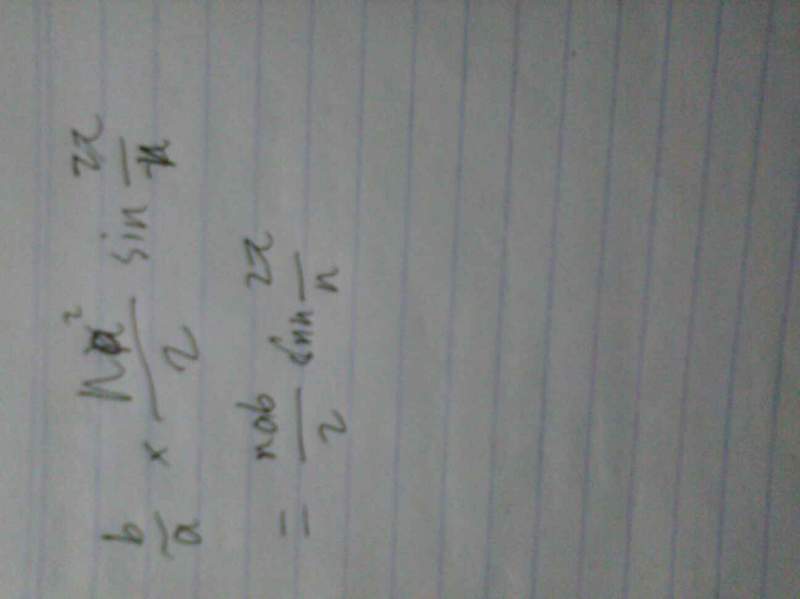 b/a × na²/2 sin 2π/n
= nab/2 sin 2π/n